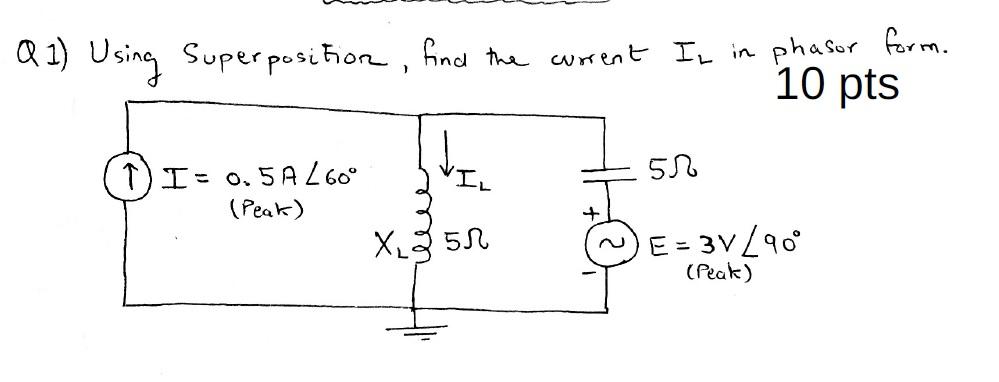 Q1) Using Superposition, find the current I_L in phasor form.
10 pts
I = 0.5A ∠60°
(Peak)
I_L
X_L 5Ω
5Ω
+
E = 3V ∠90°
-
(Peak)